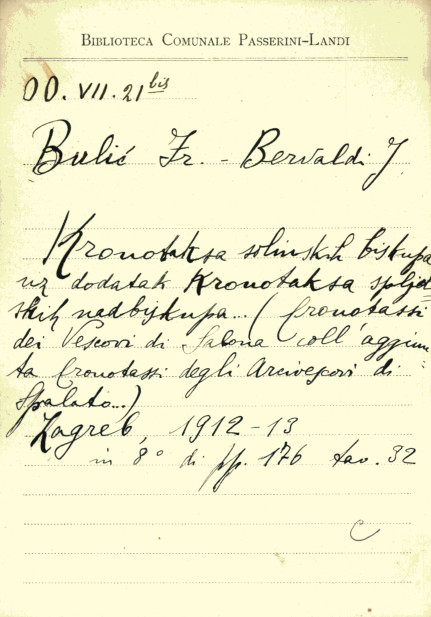 BIBLIOTECA COMUNALE PASSERINI-LANDI
OO. VII. 21 bis
Bulić Fr. - Bervaldi J
Kronotaksa solinskih biskupa
uz dodatak Kronotaksa spljet=
skih nadbiskupa... (Cronotassi
dei Vescovi di Salona coll'aggiun=
ta Cronotassi degli Arcivescovi di
Spalato...)
Zagreb, 1912-13
in 8° di pp. 176 tav. 32
C